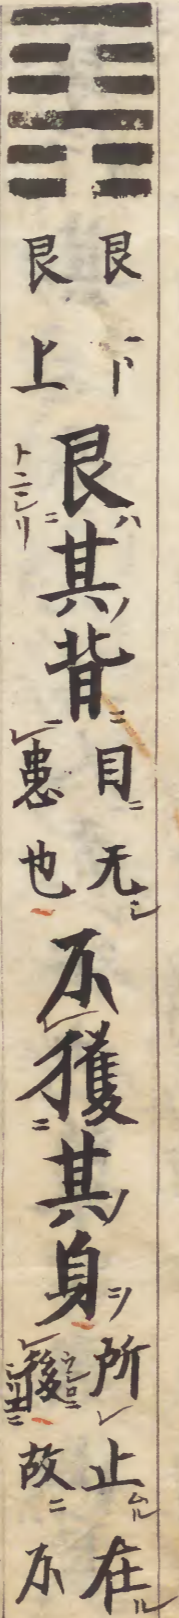 ䷳艮下艮上艮其背目无患也不獲其身所止在後故不